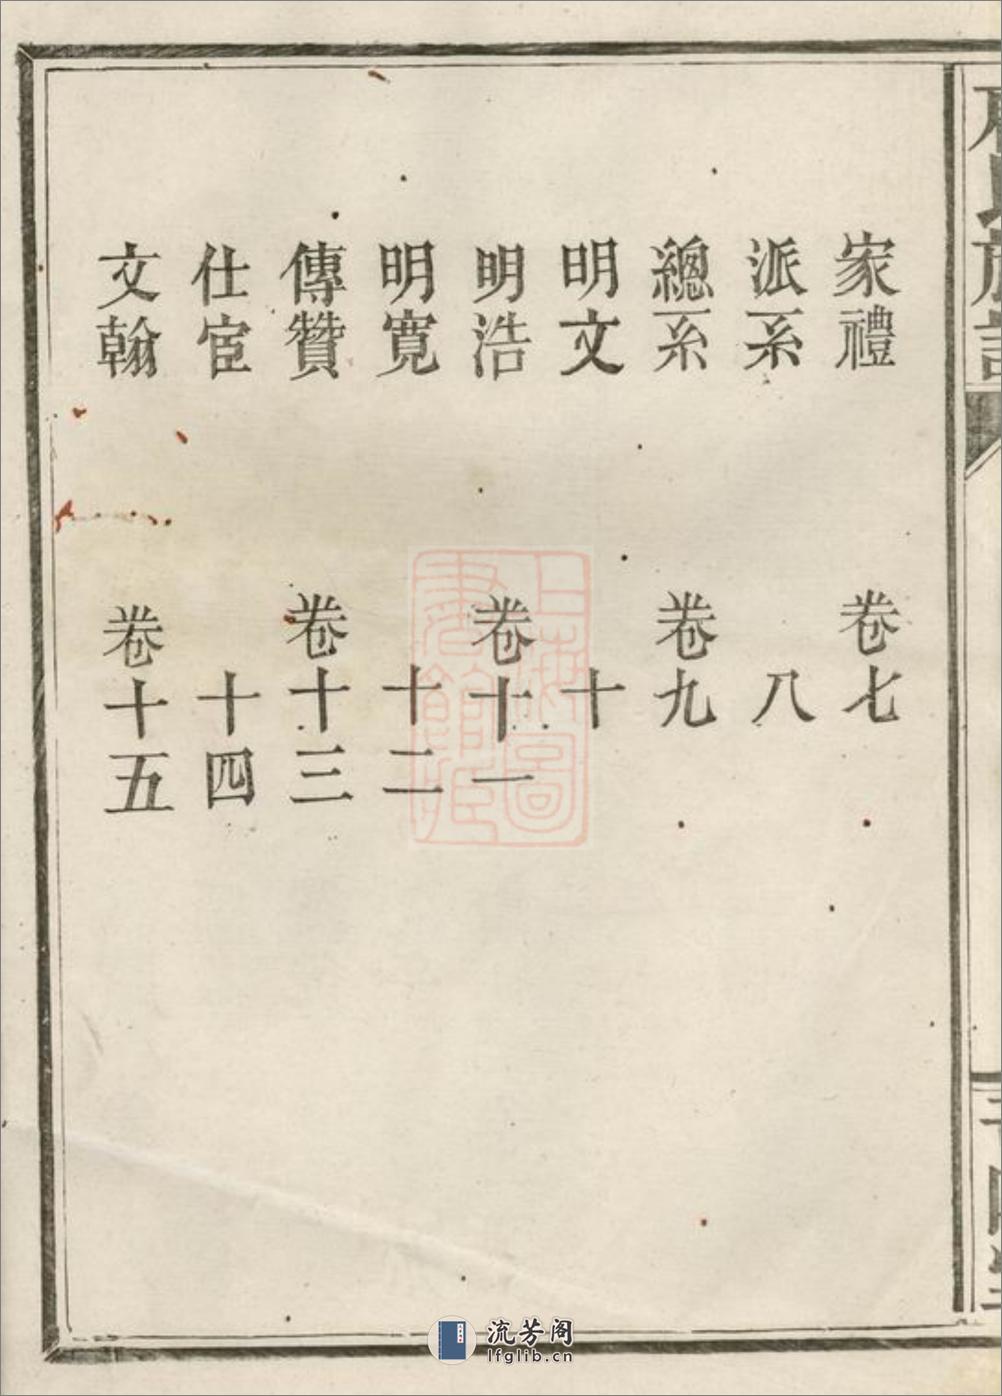 家禮 卷七
派系 八
總系 卷九
明文 十
明浩 卷十一
明寬 十二
傳贊 卷十三
仕宦 十四
文翰 卷十五
上海圖書館藏
流芳阁
lfglib.cn